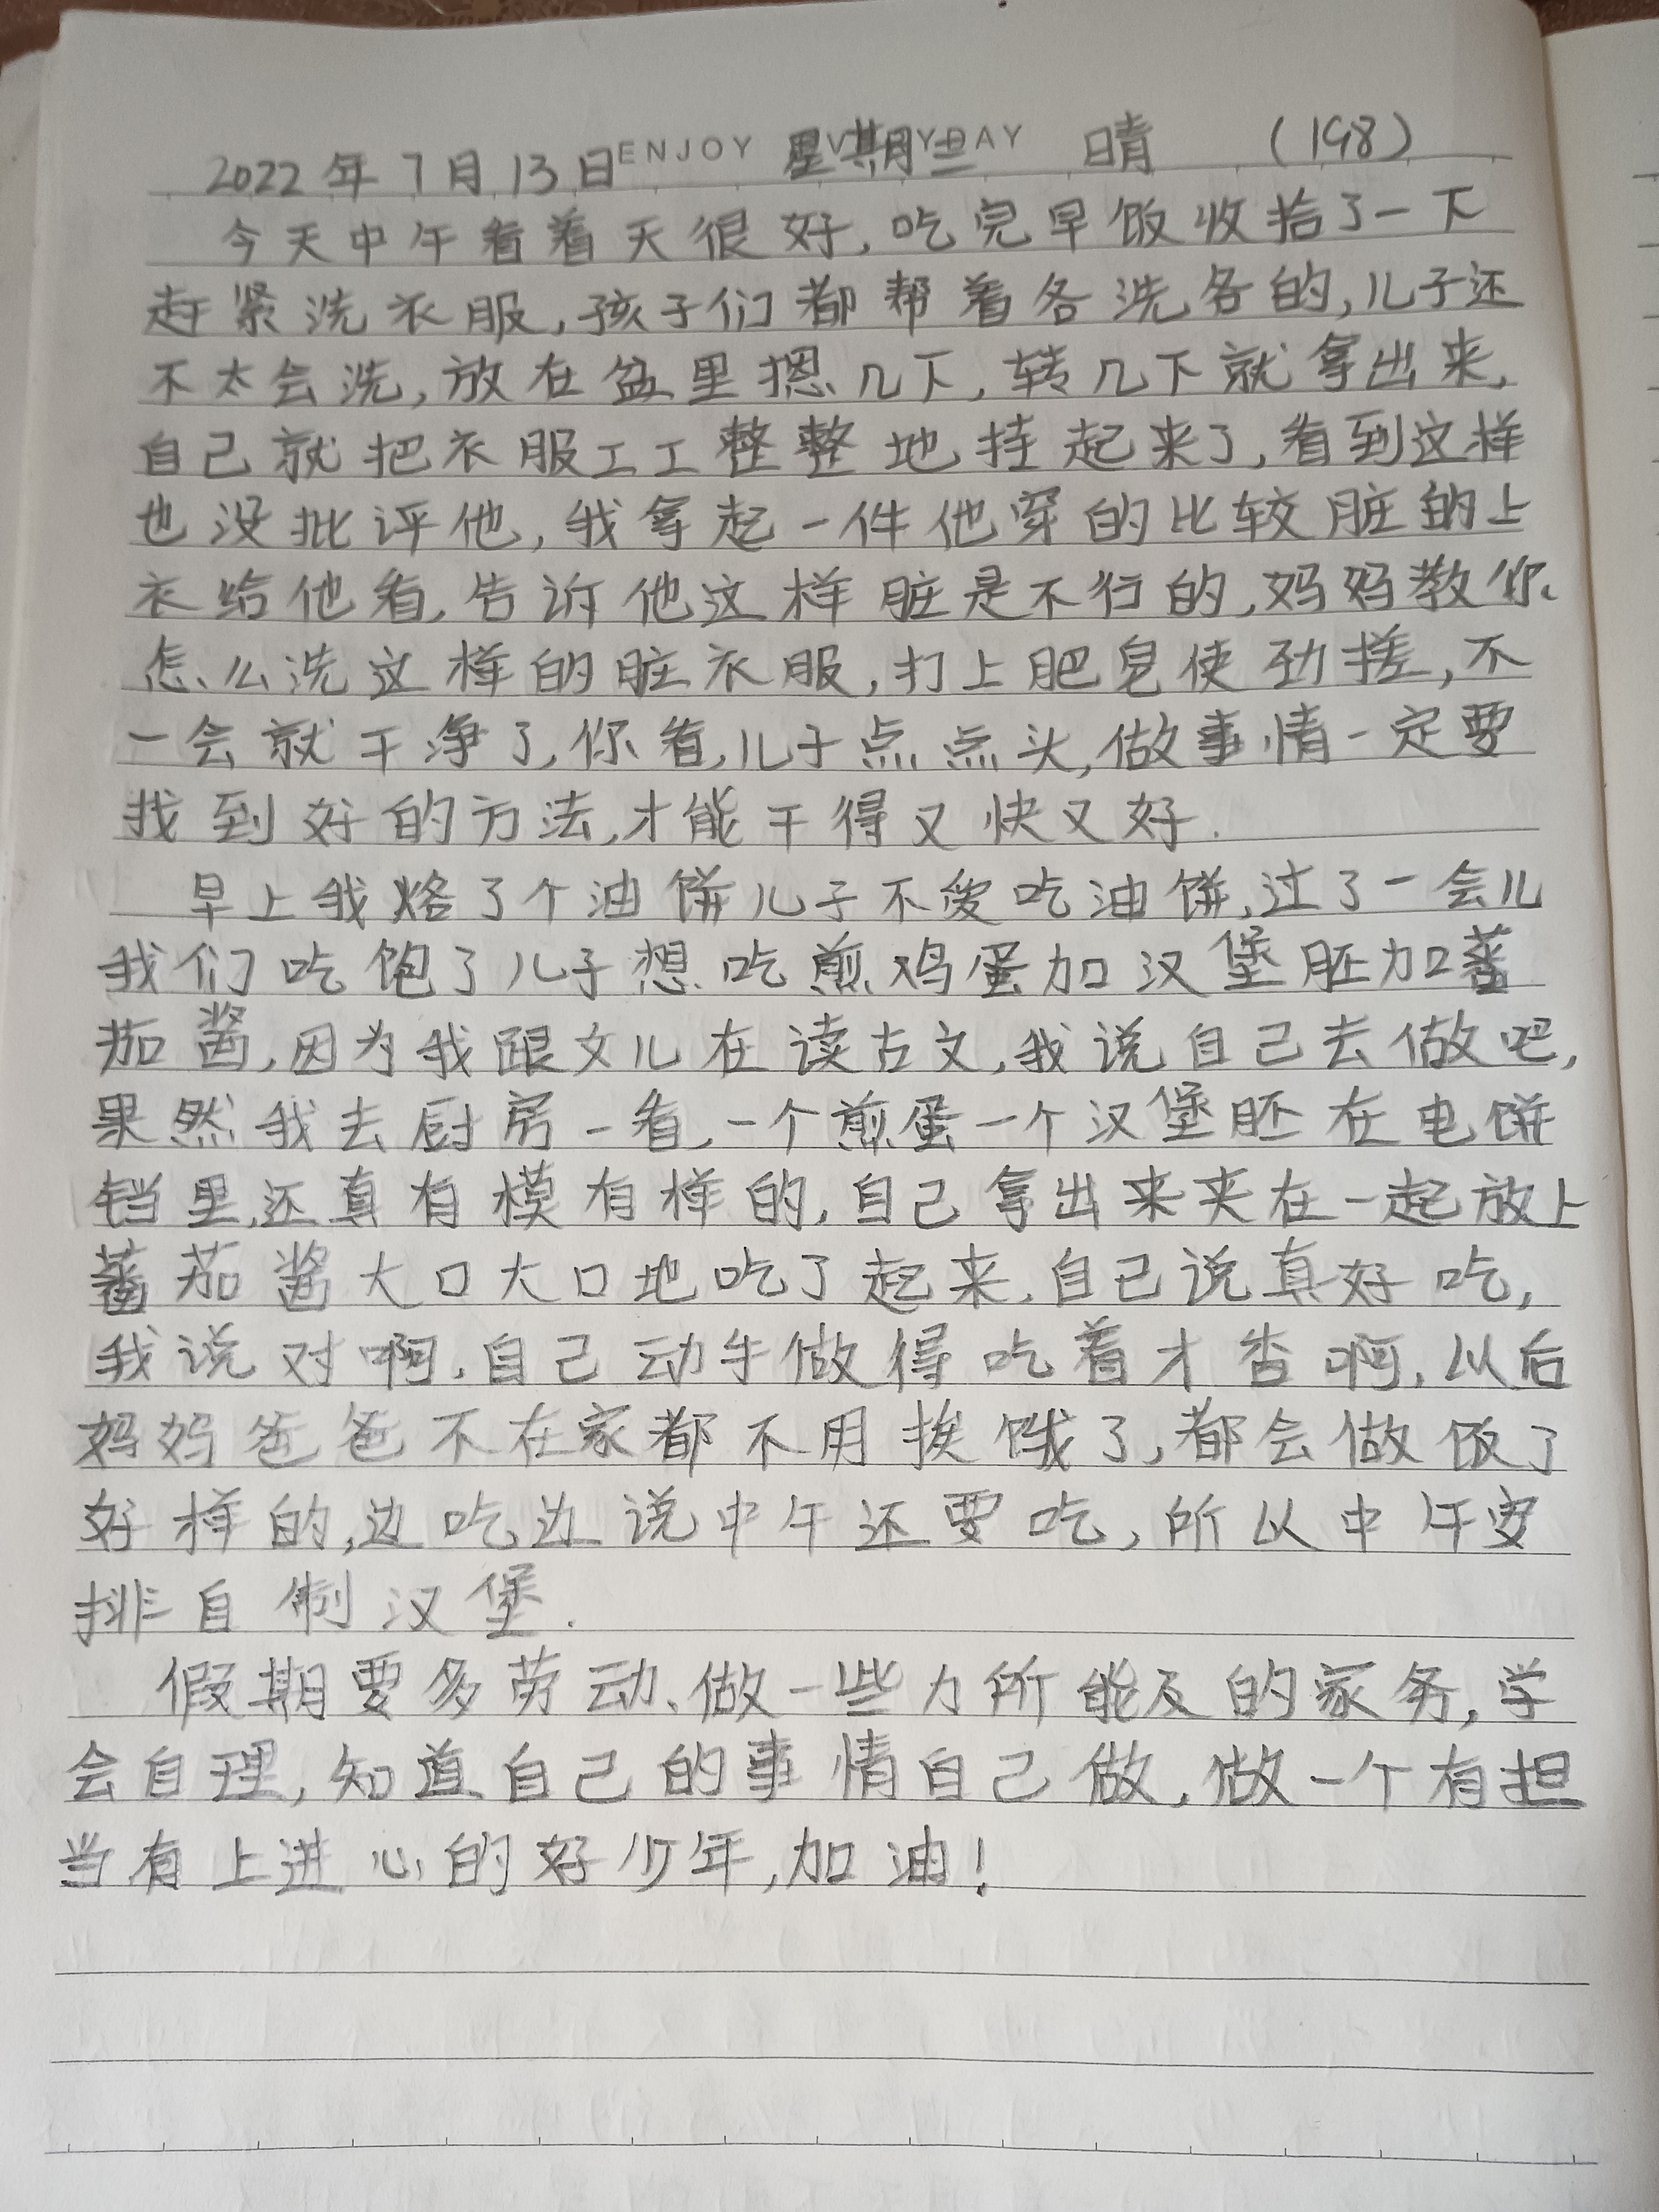 ENJOY EVERYDAY
2022年7月13日 星期三 晴 (198)
今天中午看着天很好,吃完早饭收拾了一下
赶紧洗衣服,孩子们都帮着各洗各的,儿子还
不太会洗,放在盆里摁几下,转几下就拿出来,
自己就把衣服工工整整地挂起来了,看到这样
也没批评他,我拿起一件他穿的比较脏的上
衣给他看,告诉他这样脏是不行的,妈妈教你
怎么洗这样的脏衣服,打上肥皂使劲搓,不
一会就干净了,你看,儿子点点头,做事情一定要
找到好的方法,才能干得又快又好.
早上我烙了个油饼儿子不爱吃油饼,过了一会儿
我们吃饱了儿子想吃煎鸡蛋加汉堡胚加蕃
茄酱,因为我跟女儿在读古文,我说自己去做吧,
果然我去厨房一看,一个煎蛋一个汉堡胚在电饼
铛里,还真有模有样的,自己拿出来夹在一起放上
蕃茄酱大口大口地吃了起来.自己说真好吃,
我说对啊,自己动手做得吃着才香啊,以后
妈妈爸爸不在家都不用挨饿了,都会做饭了
好样的,边吃边说中午还要吃,所以中午安
排自制汉堡.
假期要多劳动、做一些力所能及的家务,学
会自理,知道自己的事情自己做,做一个有担
当有上进心的好少年,加油!